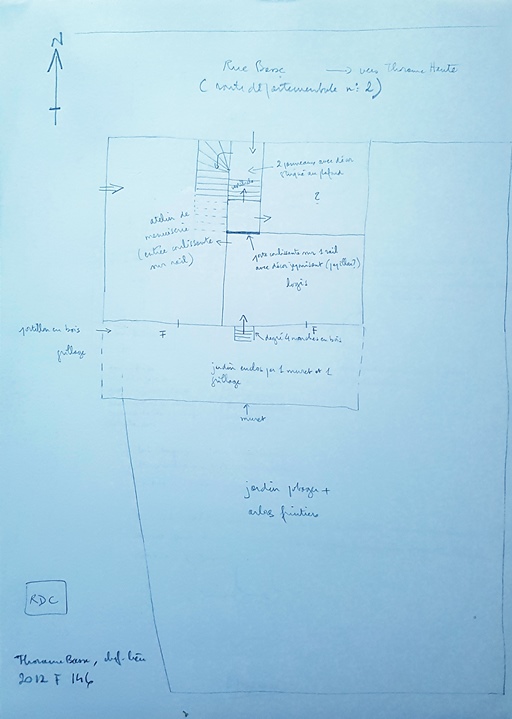 N
Rue Basse → vers Thorame Haute
(route départementale n° 2)
2 panneaux avec décor
au plafond
?
atelier de
menuiserie
(entrée coulissante
sur rail)
porte coulissante sur 1 rail
avec décor
logis
portillon en bois
grillage
F
F
degré 4 marches en bois
jardin enclos par 1 muret et 1
grillage
muret
jardin potager +
arbres fruitiers
RDC
Thorame Basse, chef-lieu
2012 F 146